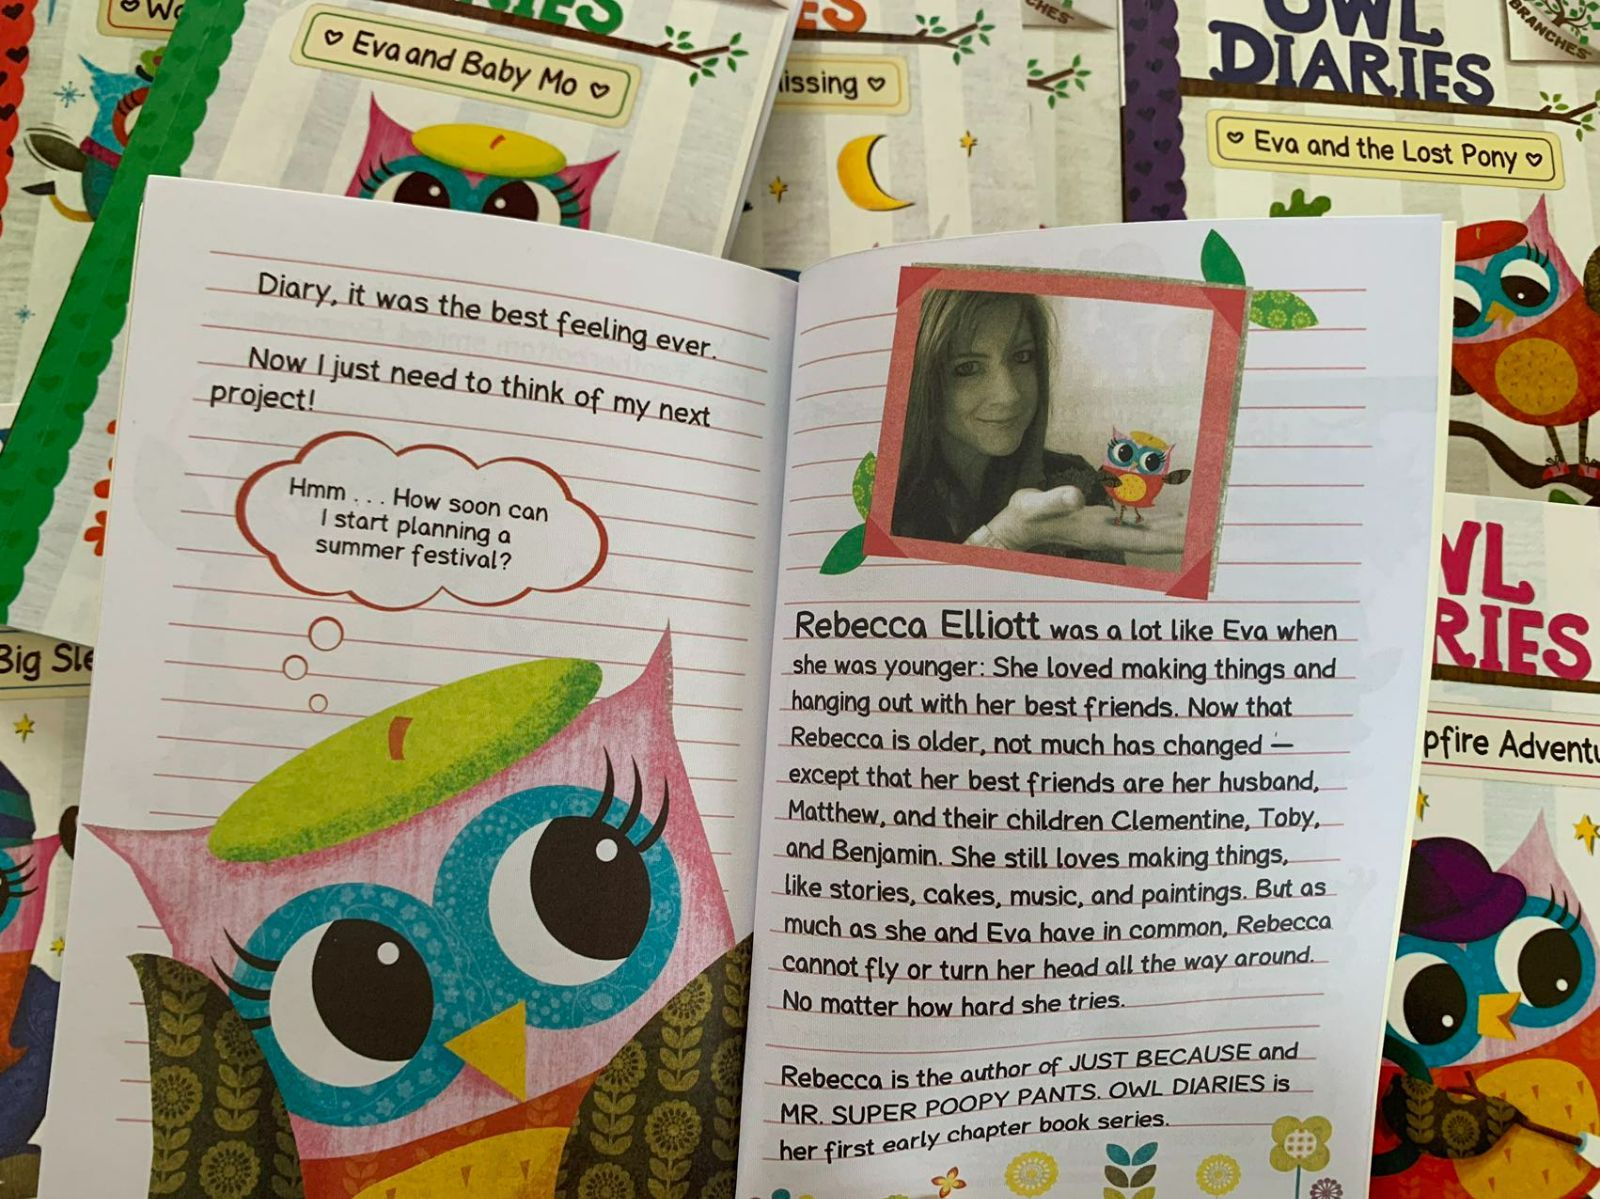 Eva and Baby Mo
OWL
DIARIES
BRANCHES
Eva and the Lost Pony
Diary, it was the best feeling ever.
Now I just need to think of my next
project!
Hmm . . . How soon can
I start planning a
summer festival?
Rebecca Elliott was a lot like Eva when
she was younger: She loved making things and
hanging out with her best friends. Now that
Rebecca is older, not much has changed —
except that her best friends are her husband,
Matthew, and their children Clementine, Toby,
and Benjamin. She still loves making things,
like stories, cakes, music, and paintings. But as
much as she and Eva have in common, Rebecca
cannot fly or turn her head all the way around.
No matter how hard she tries.
Rebecca is the author of JUST BECAUSE and
MR. SUPER POOPY PANTS. OWL DIARIES is
her first early chapter book series.
Big